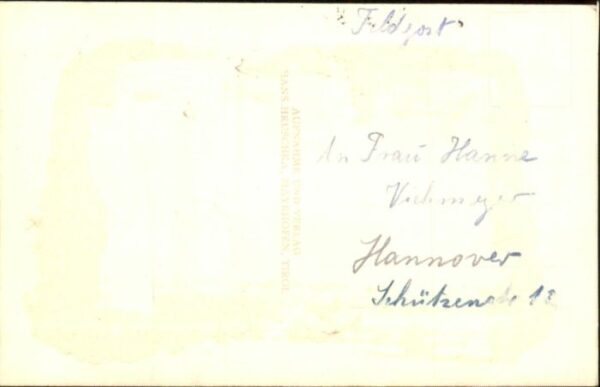 Feldpost
AUFNAHME UND VERLAG
HANS HRUSCHKA, MAYRHOFEN, TIROL
An Frau Hanne
Viehmeyer
Hannover
Schützenstr 12